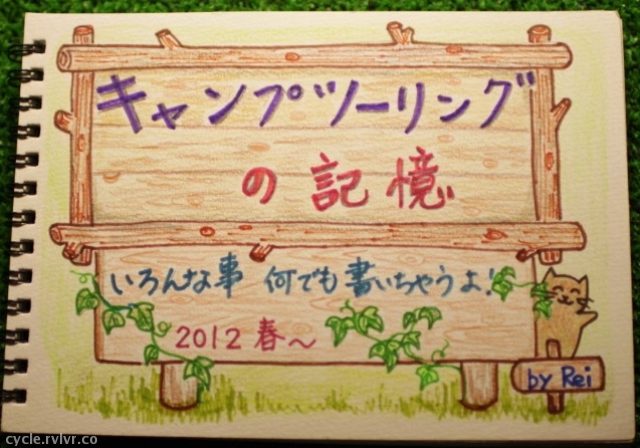 キャンプツーリング
の記憶
いろんな事 何でも書いちゃうよ!
2012 春〜
by Rei
cycle.rvlvr.co